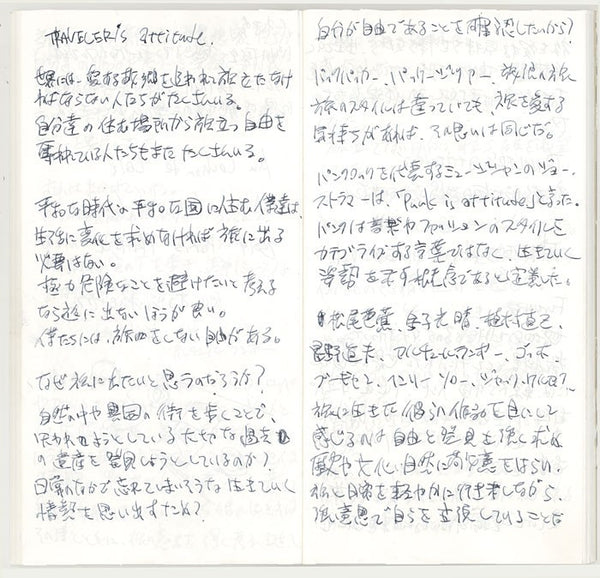 TRAVELER's attitude.
世界には、愛する故郷を追われて旅立たなけ
ればならない人たちがたくさんいる。
自分達の住む場所から旅立つ自由を
奪われている人たちもまたたくさんいる。
平和な時代の平和な国に住む僕達は、
生活に変化を求めなければ旅に出る
必要はない。
極力危険なことを避けたいと考える
なら旅に出ないほうが良い。
僕たちには、旅をしない自由がある。
なぜ旅に出たいと思うのだろうか?
自然の中や異国の街を歩くことで、
失われようとしている大切な過去
の遺産を発見しようとしているのか?
日常のなかで忘れてしまいそうな生きていく
情熱を思い出すため?
自分が自由であることを確認したいから?
バックパッカー、パッケージツアー、放浪の旅
旅のスタイルは違っていても、旅を愛する
気持ちがあれば、その思いは同じだ。
パンクロックを代表するミュージシャンのジョー・
ストラマーは、「Punk is attitude」と言った。
パンクは音楽やファッションのスタイルを
カテゴライズする言葉ではなく、生きていく
姿勢を示す概念であると定義した。
松尾芭蕉、金子光晴、植村直己、
星野道夫、アルチュール・ランボー、ゴッホ、
ブルース・チャトウィン、ヘンリー・ソロー、ジャック・ケルアック、
旅に生きた彼らの作品を目にして
感じるのは自由と発見を強く求め
歴史や文化、自然に敬意をはらい、
旅と日常を軽やかに行き来しながら、
強い意思で自らを主張していることだ